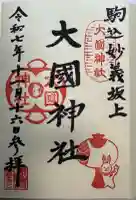 駒込妙義坂上
大國神社
大國神社
令和七年
月
六日参拝